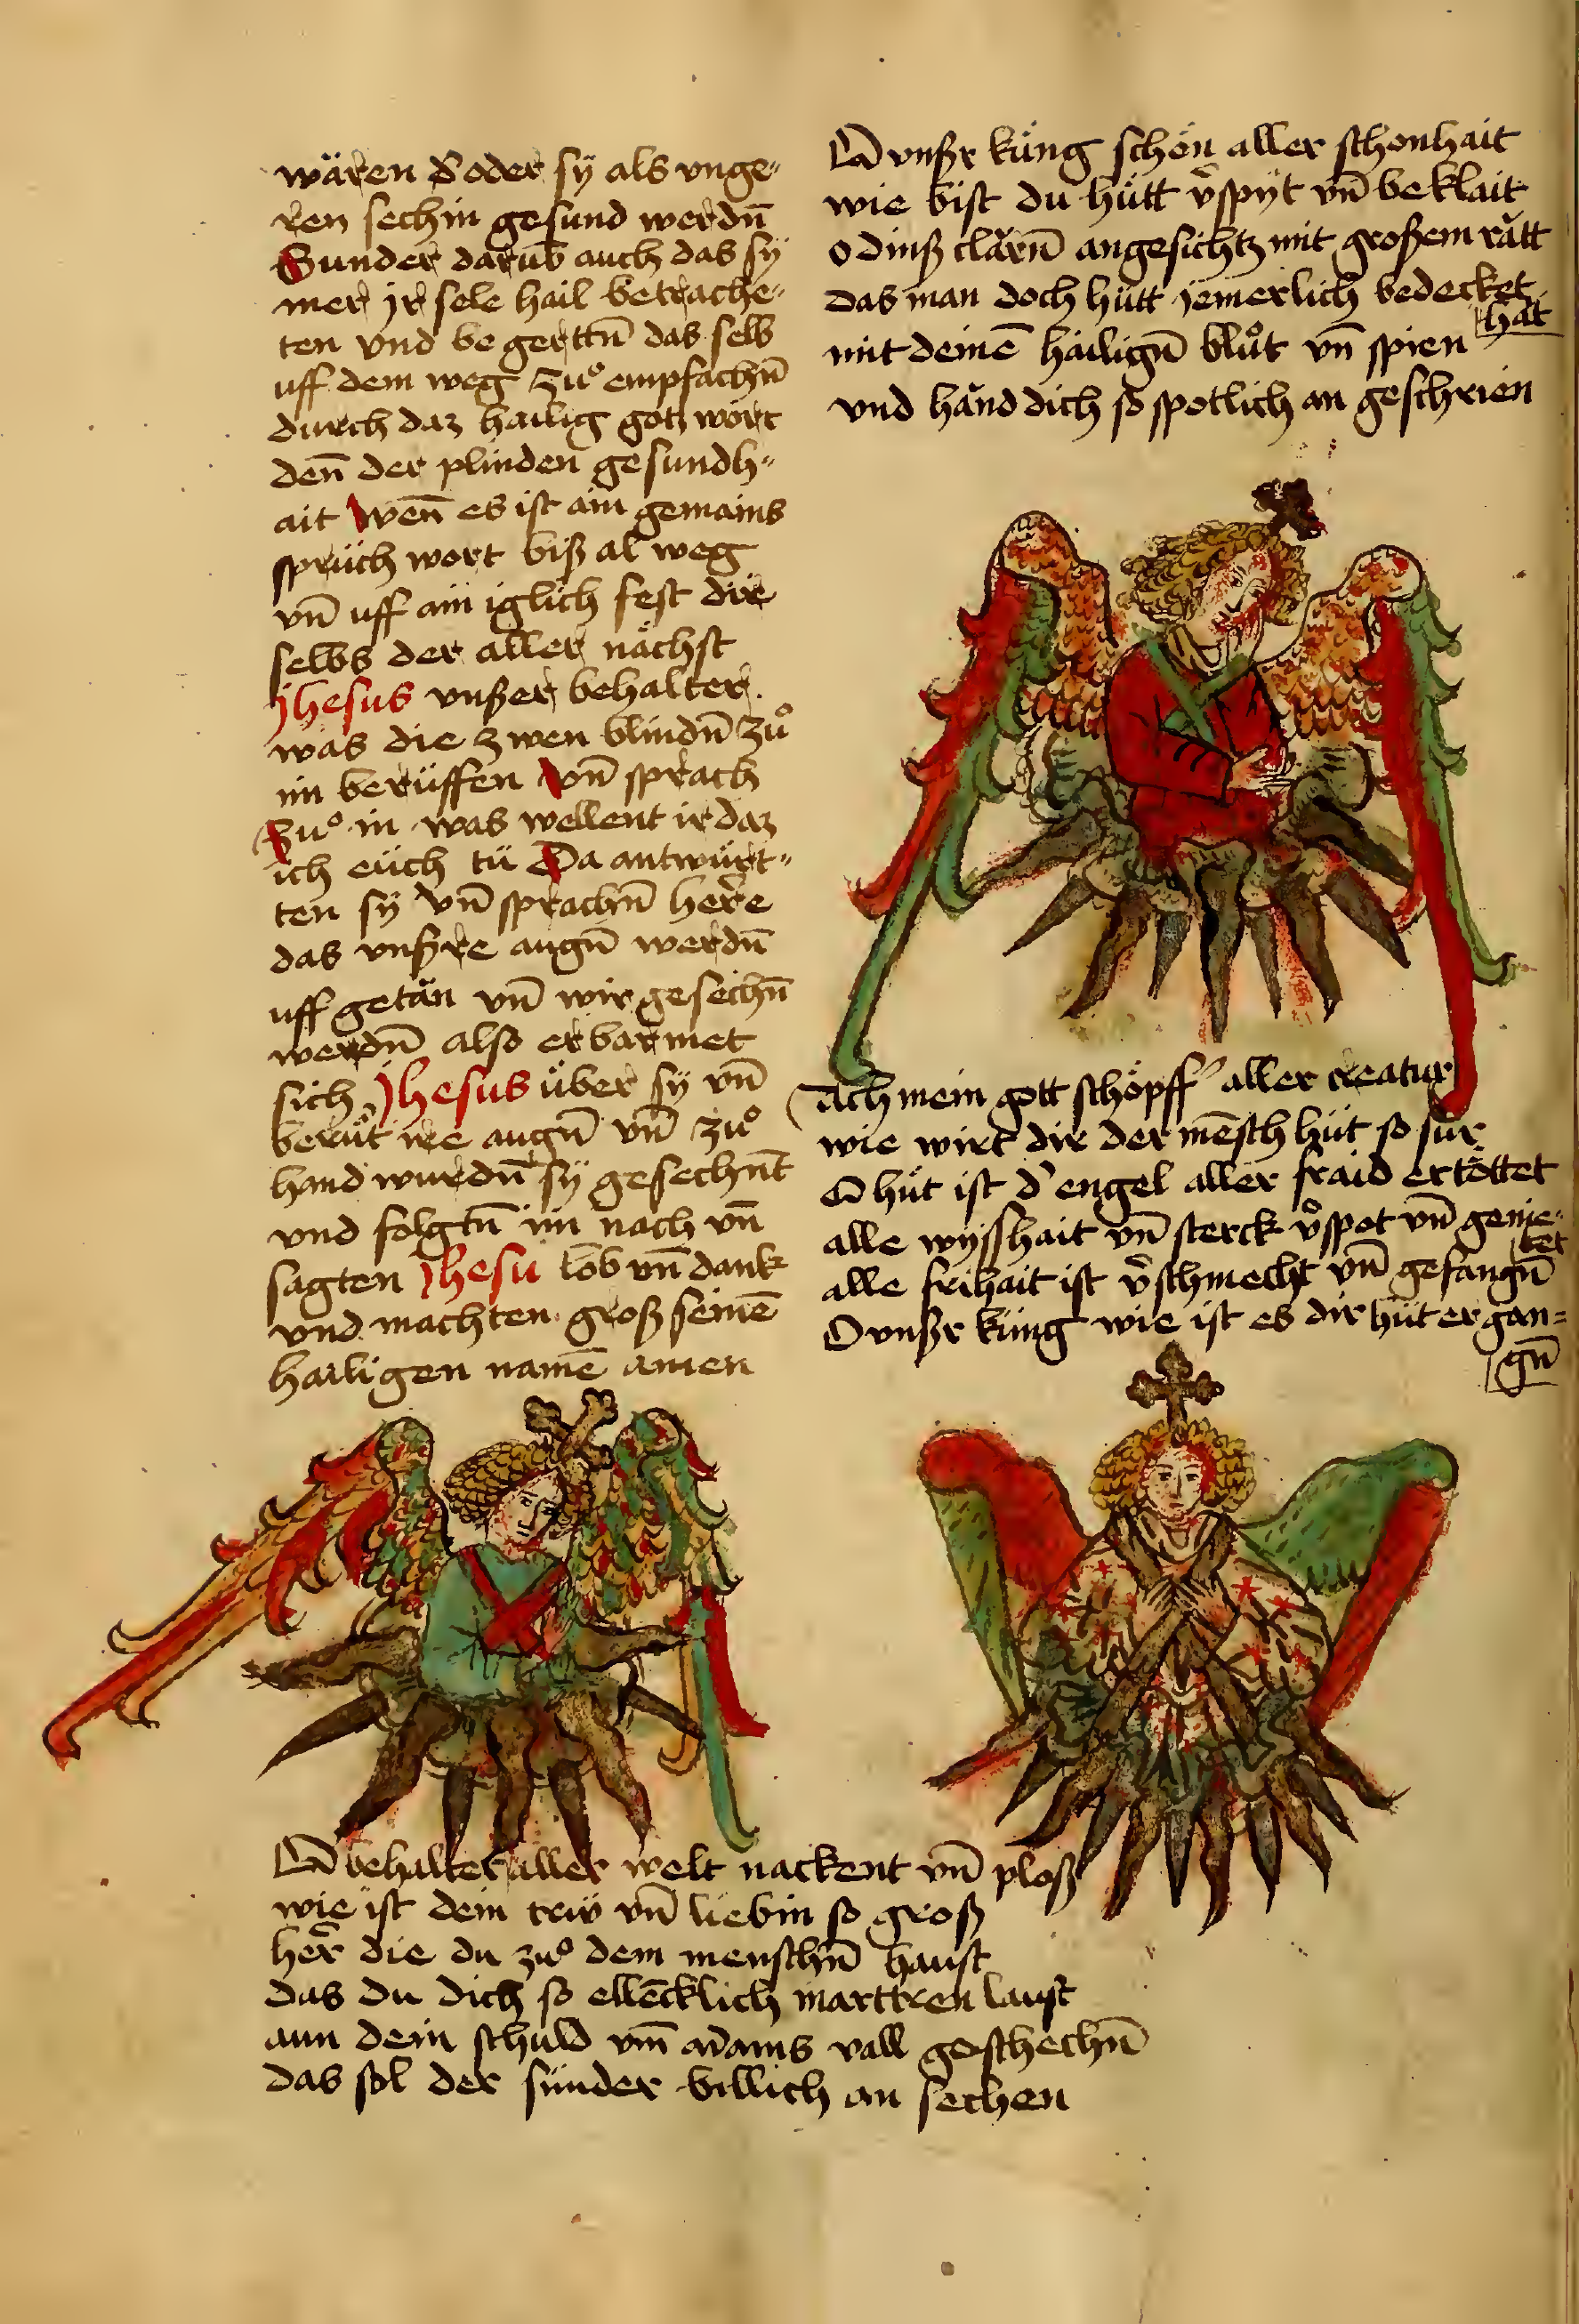 wären d' oder sy als unge-
ren sechin gesund werdn̄
Sunder darūb auch das sÿ
mer jr sele hail betrache-
ten vnd begerttn̄ das selb
uff dem weg zuͦ empfachn̄
durch daz hailig gotz wort
den̄ der plinden gesundh-
ait Wen̄ es ist ain gemains
sprüch wort biß al weg
vn̄ uff ain iglich fest dir
selbs der aller nächst
Jhesus vnßer behalter
was die zwen blindn̄ zuͦ
im berüffen Vn̄ sprach
Zuͦ in was wellent ir daz
ich eüch tü Da antwürt-
ten sÿ vn̄ sprachn̄ here
das vnßre augn̄ werdn̄
uff getän vn̄ wir gesechn̄
werdn̄ also erbarmet
sich Jhesus über sÿ vn̄
berüͦt ire augn̄ vn̄ zuͦ
hand wurdn̄ sÿ gesechn̄t
vnd folgtn̄ im nach vn̄
sagten Jhesu lob vn̄ dank
vnd machten groß seinē
hailigen namē amen
O vnßr küng schön aller schonhait
wie bist du hütt v̄spÿt vn̄ beklait
o dinß clärn̄ angesichtz mit großem rätt
das man doch hütt jemerlich bedecket
hat
mit deinē hailign̄ bluͦt vn̄ spien
vnd händ dich so spotlich an geschrien
Ach mein gott schöpff' aller creatur
wie wirt dir der mēsch hüt so sur
O hüt ist d' engel aller fraid ertöttet
alle wÿsshait vn̄ sterck v̄spot vn̄ genie-
tet
alle frihait ist v̄schmecht vn̄ gefangn̄
O vnßr küng wie ist es dir hüt ergan-
gn̄
O behalter aller welt nackent vn̄ ploß
wie ist dein trüv vn̄ liebin so groß
her̄ die du zuͦ dem menschn̄ haust
das du dich so ellēcklich marttren laust
aun dein schuld vm̄ adams vall geschechn̄
das sol der sünder billich an sechen